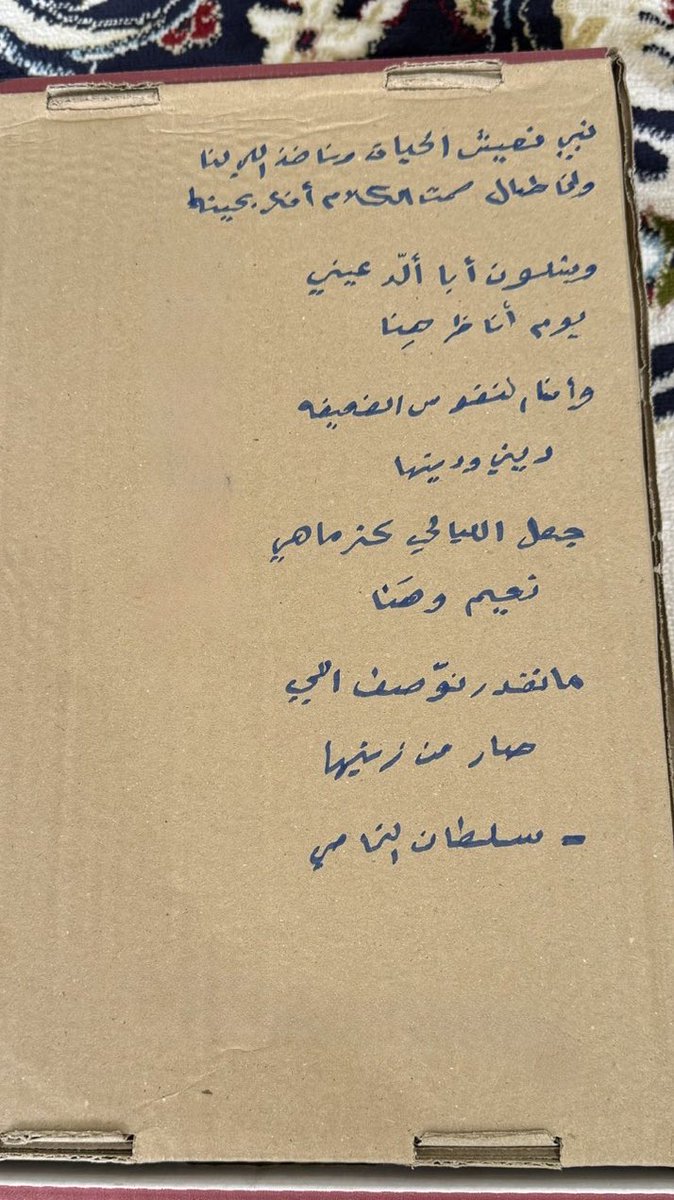 نبي نعيش الحياة وناخذ اللي لنا
ولا طال صمت الكلام أفكر بحينها
ويتلون أبا ألد عيني
يوم أناظر هنا
وامنا لنفوس الضعيفه
ديني ودينها
جعل الليالي كثر ماهي
نعيم وهَنا
مانقدر نوّصف اللي
صار من زينها
- سلطان